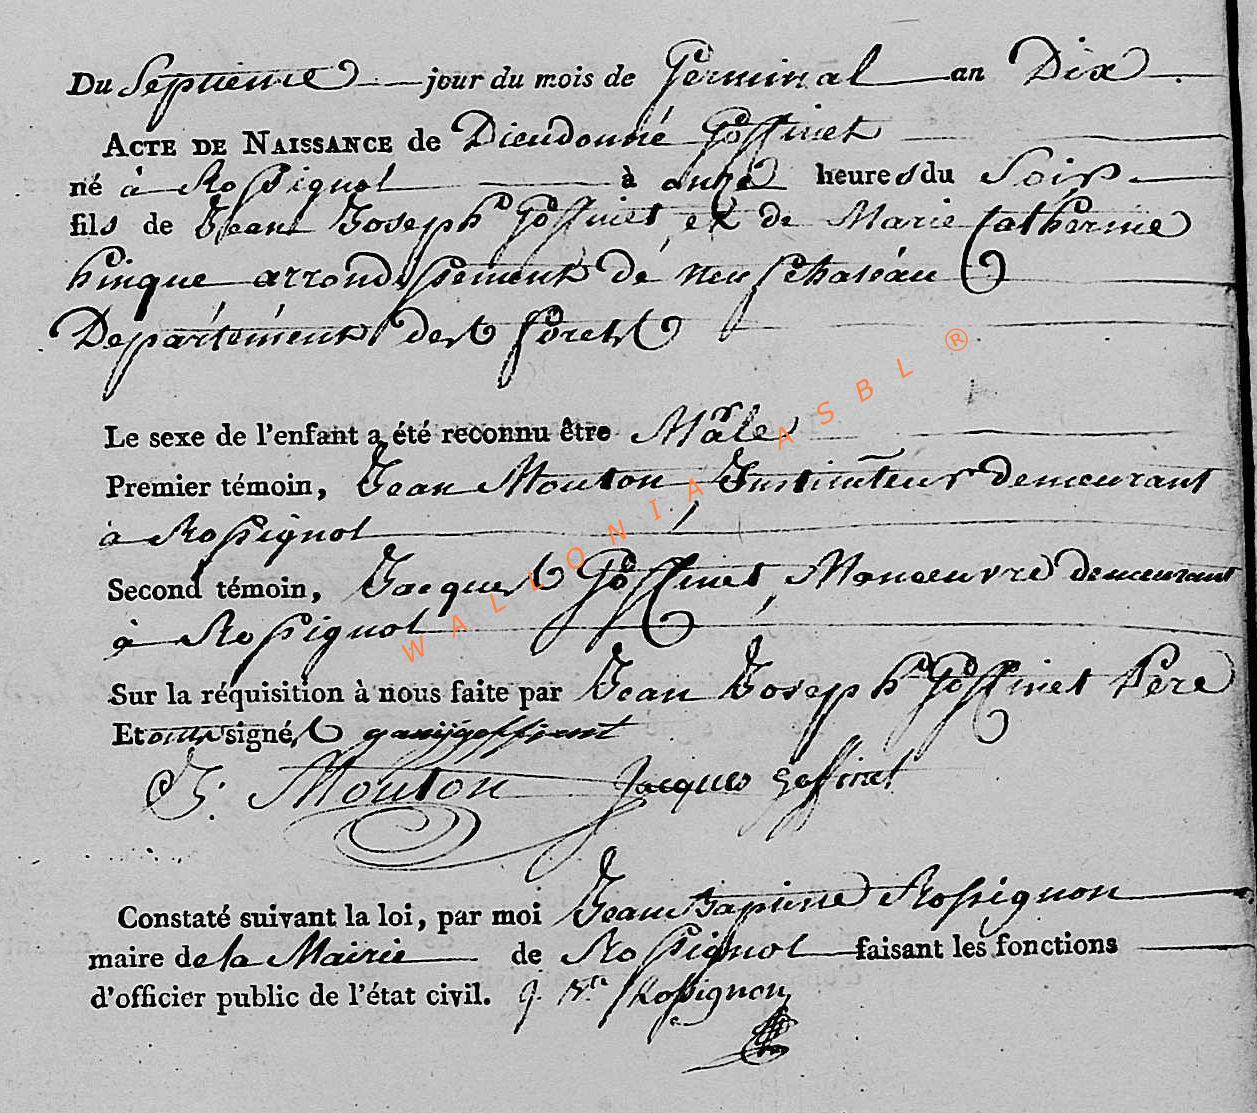 Du Septieme jour du mois de Germinal an Dix
ACTE DE NAISSANCE de Dieudonné Goffinet
né à Rossignol à onze heures du Soir
fils de Jean Joseph Goffinet, et de Marie Catherine
hinque arrondissement de neufchateau
Departement des forets
Le sexe de l'enfant a été reconnu être Mâle
Premier témoin, Jean Mouton Instituteur demeurant
à Rossignol
Second témoin, Jacques Goffinet, Manoeuvre demeurant
à Rossignol
Sur la réquisition à nous faite par Jean Joseph Goffinet Pere
Et ont signés goffinet
J. Mouton Jacques goffinet
Constaté suivant la loi, par moi Jean Baptiste Rossignon
maire de la Mairie de Rossignol faisant les fonctions
d'officier public de l'état civil. J. Bte Rossignon
WALLONIA ASBL ®